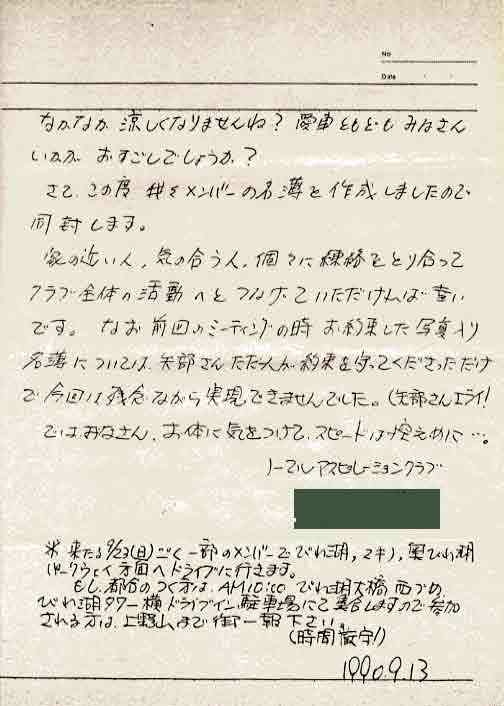 No
Date
なかなか 涼しくなりませんね? 愛車ともども みなさん
いかが おすごしでしょうか?
さて、この度 我々メンバーの名簿を作成しましたので
同封します。
家の近い人、気の合う人、個々に連絡をとり合って
クラブ全体の活動へとつなげていただければ幸い
です。なお前回のミーティングの時 お約束した写真入り
名簿については、矢部さんただ一人が約束を守ってくださっただけ
で今回は残念ながら実現できませんでした。(矢部さんエライ!
ではみなさん、お体に気をつけて、スピードは控えめに…。
ノーマルアスピレーションクラブ
※ 来たる9/23(日)ごく一部のメンバーでびわ湖,マキノ,奥びわ湖
パークウェイ方面へドライブに行きます。
もし、都合のつく方は、AM10:00 びわ湖大橋西づめ、
びわ湖タワー横ドライブイン駐車場にて集合しますので参加
される方は、上野山まで御一報下さい。
(時間厳守!)
1990.9.13